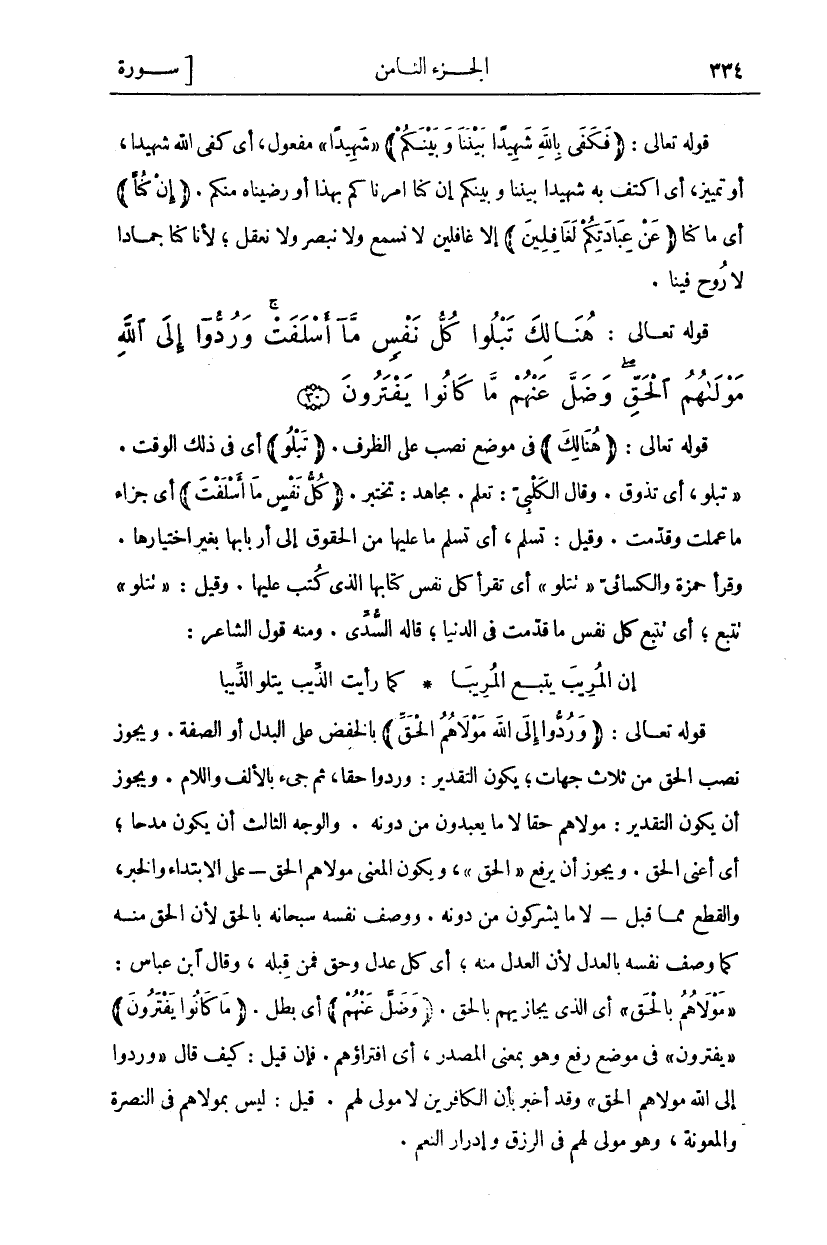 ٣٣٤ الجـــزء الثـامن [ ســـورة
قوله تعالى : ﴿ فَكَفَى بِاللَّهِ شَهِيدًا بَيْنَنَا وَ بَيْنَكُمْ ﴾ «شَهِيدًا» مفعول، أى كفى الله شهيدا ،
أو تمييز، أى اكتف به شهيدا بيننا و بينكم إن كنا امرنا كم بهذا أو رضيناه منكم . ﴿ إِنْ كُنَّا ﴾
أى ما كنا ﴿ عَنْ عِبَادَتِكُمْ لَغَافِلِينَ ﴾ إلا غافلين لا نسمع ولا نبصر ولا نعقل ؛ لأنا كنا جمـادا
لا رُوح فينا .
قوله تعـالى : هُنَـالِكَ تَبْلُوا كُلُّ نَفْسٍ مَّآ أَسْلَفَتْ ۚ وَرُدُّوٓا إِلَى ٱللَّهِ
مَوْلَىٰهُمُ ٱلْحَقِّ ۖ وَضَلَّ عَنْهُم مَّا كَانُوا يَفْتَرُونَ ﴿٣٠﴾
قوله تعالى : ﴿ هُنَالِكَ ﴾ فى موضع نصب على الظرف . ﴿ تَبْلُو ﴾ أى فى ذلك الوقت .
« تبلو ، أى تذوق . وقال الكَلْبِىّ : تعلم . مجاهد : تختبر . ﴿ كُلُّ نَفْسٍ مَا أَسْلَفَتْ ﴾ أى جزاء
ما عملت وقدّمت . وقيل : تسلم ، أى تسلم ما عليها من الحقوق إلى أربابها بغير اختيارها .
وقرأ حمزة والكسائىّ « تتلو » أى تقرأ كل نفس كتابها الذى كُتب عليها . وقيل : « تتلو »
تتبع ؛ أى تتبع كل نفس ما قدّمت فى الدنيا ؛ قاله السُّدِّى . ومنه قول الشاعر :
إن المُرِيبَ يتبـع المُرِيبَـا * كما رأيت الذِّيب يتلو الذِّيبا
قوله تعـالى : ﴿ وَرُدُّوا إِلَى اللهِ مَوْلَاهُمُ الْحَقِّ ﴾ بالخفض على البدل أو الصفة . و يجوز
نصب الحق من ثلاث جهات ؛ يكون التقدير : وردوا حقا، ثم جىء بالألف واللام . ويجوز
أن يكون التقدير : مولاهم حقا لا ما يعبدون من دونه . والوجه الثالث أن يكون مدحا ؛
أى أعنى الحق . و يجوز أن يرفع « الحق »، و يكون المعنى مولاهم الحق — على الابتداء والخبر،
والقطع ممـا قبل — لا ما يشركون من دونه . ووصف نفسه سبحانه بالحق لأن الحق منـه
كما وصف نفسه بالعدل لأن العدل منه ؛ أى كل عدل وحق فمن قِبله ، وقال آبن عباس :
«مَوْلَاهُمُ بِالْحَق» أى الذى يجازيهم بالحق . ﴿ وَضَلَّ عَنْهُمْ ﴾ أى بطل . ﴿ مَا كَانُوا يَفْتَرُونَ ﴾
«يفترون» فى موضع رفع وهو بمعنى المصدر ، أى افتراؤهم . فإن قيل : كيف قال «وردوا
إلى الله مولاهم الحق» وقد أخبر بأن الكافرين لا مولى لهم . قيل : ليس بمولاهم فى النصرة
والمعونة ، وهو مولى لهم فى الرزق و إدرار النعم .